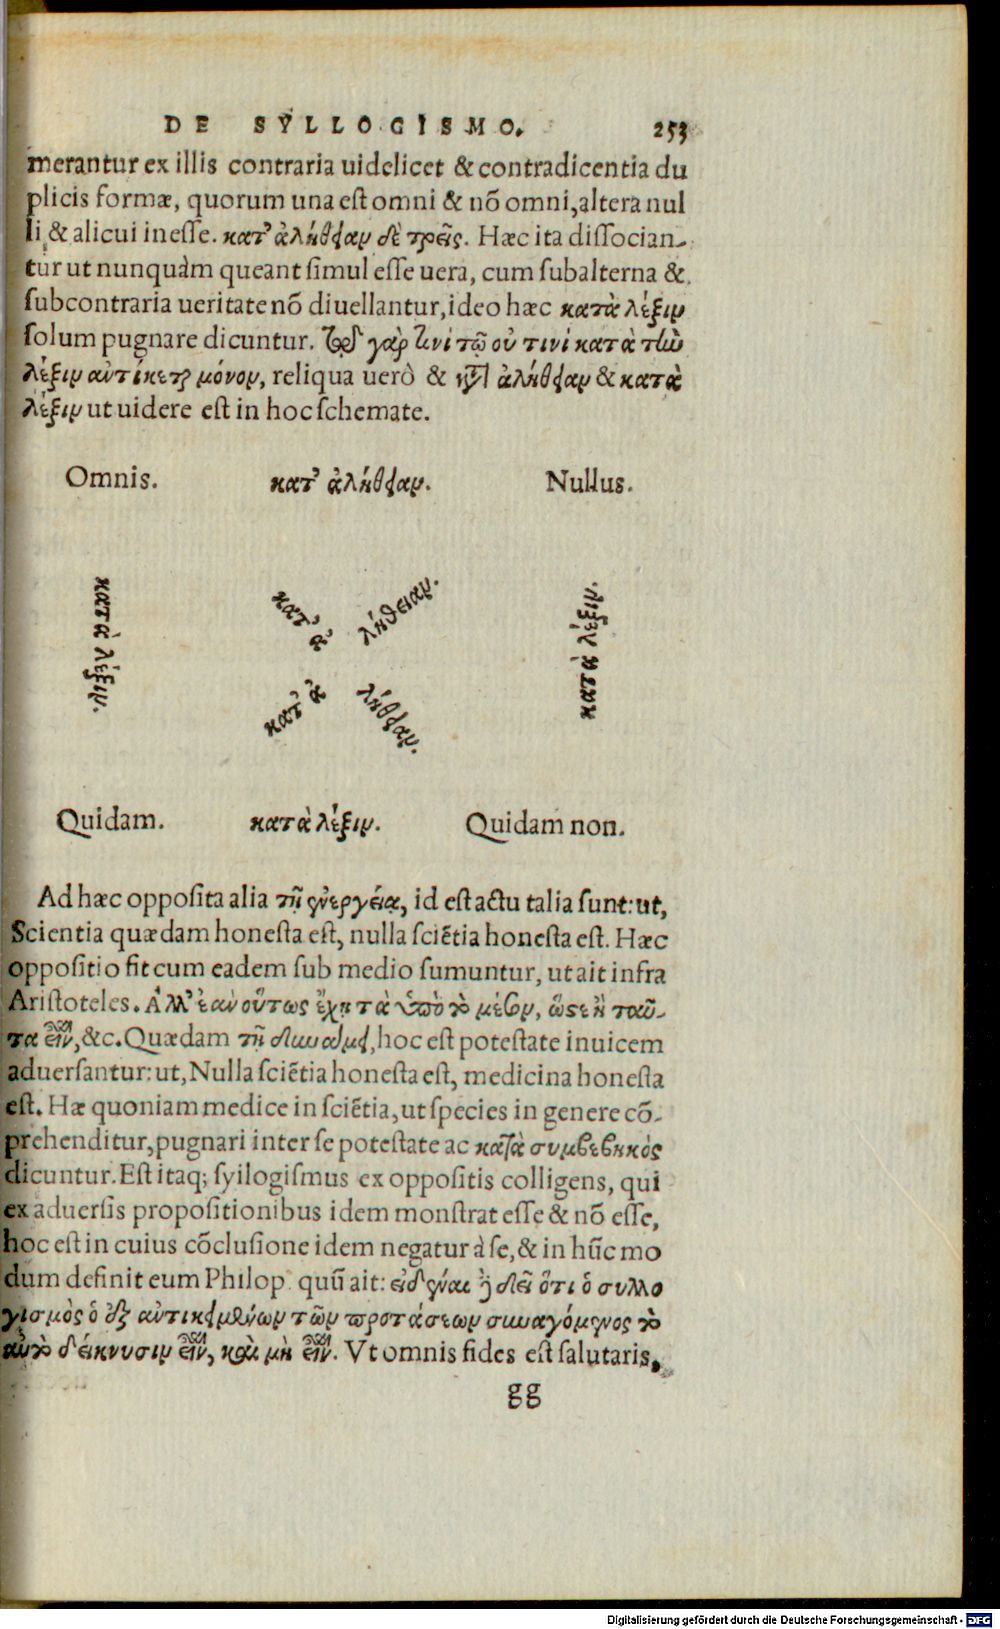 DE SYLLOGISMO. 253
merantur ex illis contraria uidelicet & contradicentia du
plicis formæ, quorum una est omni & nõ omni, altera nul
li & alicui inesse. κατ' ἀλήθειαν δὲ τρεῖς. Hæc ita dissocian-
tur ut nunquàm queant simul esse uera, cum subalterna &
subcontraria ueritate nõ diuellantur, ideo hæc κατὰ λέξιν
solum pugnare dicuntur. τὸ γὰρ τινὶ τῷ οὐ τινὶ κατὰ τὴν
λέξιν ἀντίκειται μόνον, reliqua uerò & κατ' ἀλήθειαν & κατὰ
λέξιν ut uidere est in hoc schemate.
Omnis. κατ' ἀλήθειαν. Nullus.
κατὰ λέξιν. κατ' ἀ λήθειαν. κατὰ λέξιν.
κατ' ἀ λήθειαν.
Quidam. κατὰ λέξιν. Quidam non.
Ad hæc opposita alia τῇ ἐνεργείᾳ, id est actu talia sunt: ut,
Scientia quædam honesta est, nulla sciẽtia honesta est. Hæc
oppositio fit cum eadem sub medio sumuntur, ut ait infra
Aristoteles. Ἀλλ' ἐὰν οὕτως ἔχῃ τὰ ὑπὸ τὸ μέσον, ὥστε ἢ ταῦ-
τα εἶναι, &c. Quædam τῇ δυνάμει, hoc est potestate inuicem
aduersantur: ut, Nulla sciẽtia honesta est, medicina honesta
est. Hæ quoniam medice in sciẽtia, ut species in genere cõ-
prehenditur, pugnari inter se potestate ac κατὰ συμβεβηκὸς
dicuntur. Est itaq; syilogismus ex oppositis colligens, qui
ex aduersis propositionibus idem monstrat esse & nõ esse,
hoc est in cuius cõclusione idem negatur à se, & in hũc mo
dum definit eum Philop. quũ ait: εἰδέναι δεῖ ὅτι ὁ συλλο
γισμὸς ὁ ἐξ ἀντικειμένων τῶν προτάσεων συναγόμενος τὸ
αὐτὸ δείκνυσιν εἶναι, καὶ μὴ εἶναι. Vt omnis fides est salutaris,
gg
Digitalisierung gefördert durch die Deutsche Forschungsgemeinschaft - DFG